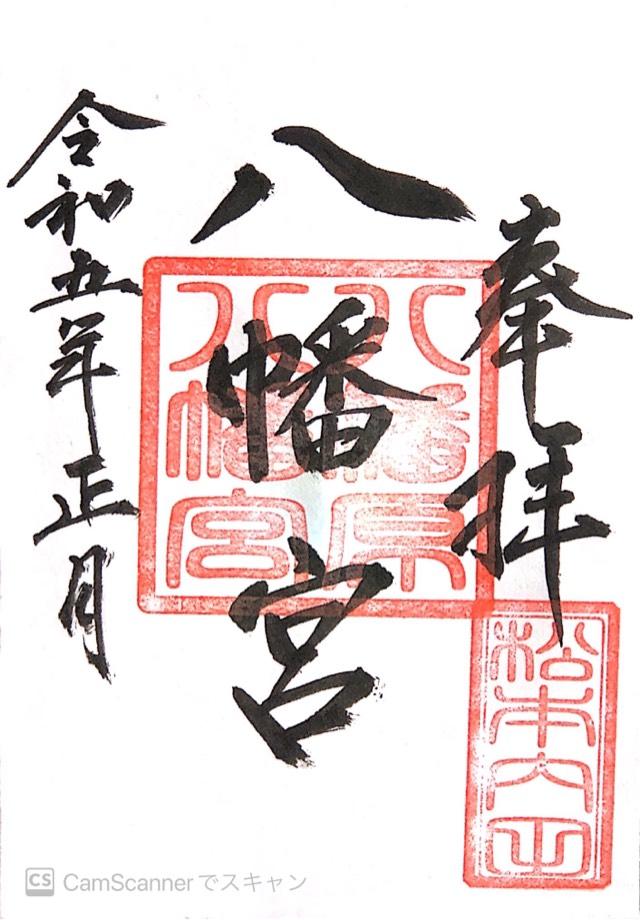 奉拝
八幡宮
令和五年正月
八幡原
八幡宮
松本内田
CS CamScannerでスキャン